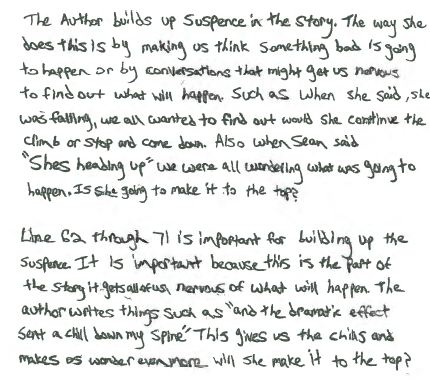 The Author builds up Suspence in the story. The way she
does this is by making us think something bad is going
to happen or by conversations that might get us nervous
to find out what will happen. Such as when she said, she
was falling, we all wanted to find out would she continue the
climb or stop and come down. Also when Sean said
"Shes heading up" we were all wondering what was going to
happen. Is she going to make it to the top?
Line 62 through 71 is important for building up the
suspence. It is important because this is the part of
the story it gets all of us nervous of what will happen. The
author writes things such as "and the dramatic effect
sent a chill down my spine" This gives us the chills and
makes us wonder even more will she make it to the top?